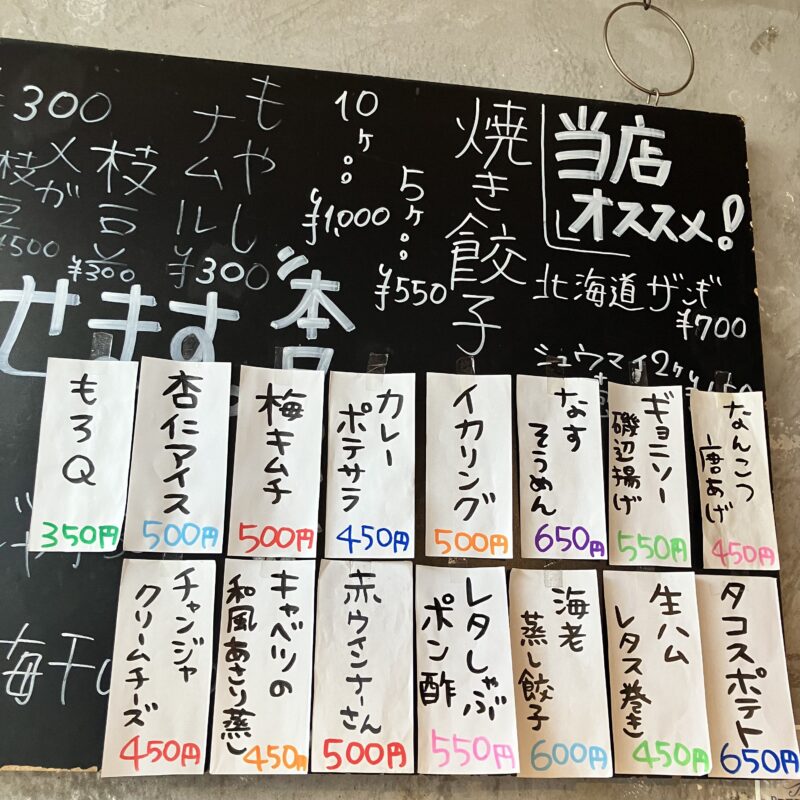 当店
オススメ!
北海道ザンギ
¥700
シュウマイ2ヶ
焼き餃子
5ヶ。。
¥550
10ヶ。。
¥1,000
もやし
ナムル
¥300
枝豆
¥300
メガ
枝豆
¥500
¥300
せます
なんこつ
唐あげ
450円
ギョニソー
磯辺揚げ
550円
なす
そうめん
650円
イカリング
500円
カレー
ポテサラ
450円
梅キムチ
500円
杏仁アイス
500円
もろQ
350円
タコスポテト
650円
生ハム
レタス巻き
450円
海老
蒸し餃子
600円
レタしゃぶ
ポン酢
550円
赤ウインナーさん
500円
キャベツの
和風あさり蒸し
450円
チャンジャ
クリームチーズ
450円
梅干